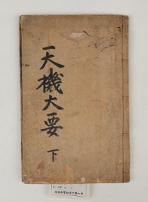 天機大要
下